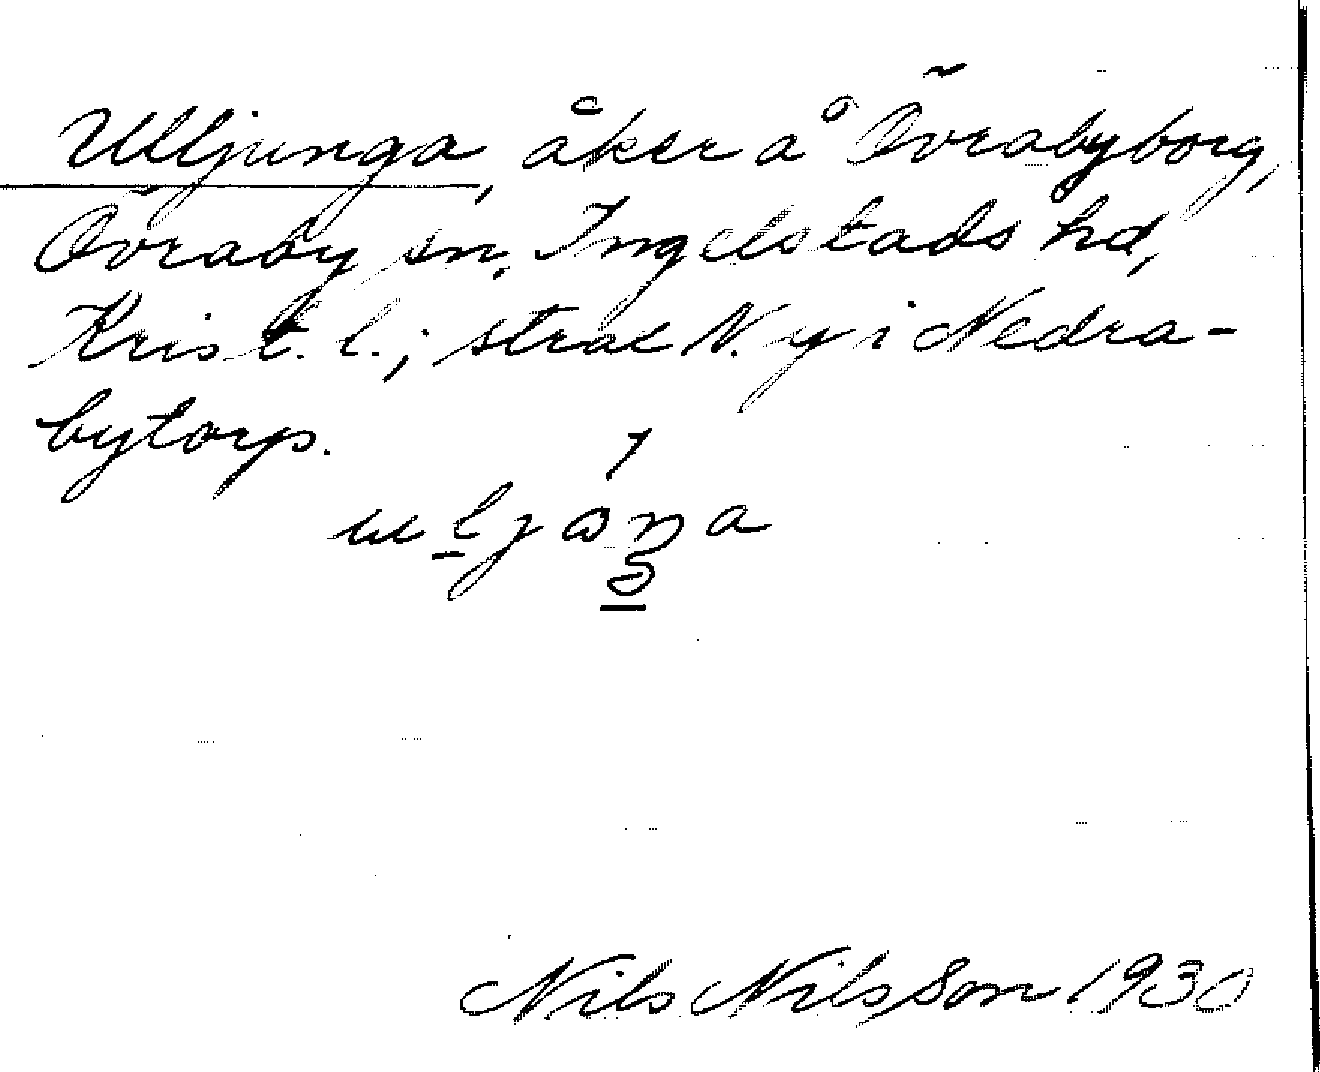 Ulljunga, åker å Övrabyborg,
Övraby sn, Ingelstads hd,
Krist. l.; strax N. y i Nedra-
bytorp.
Nils Nilsson 1930